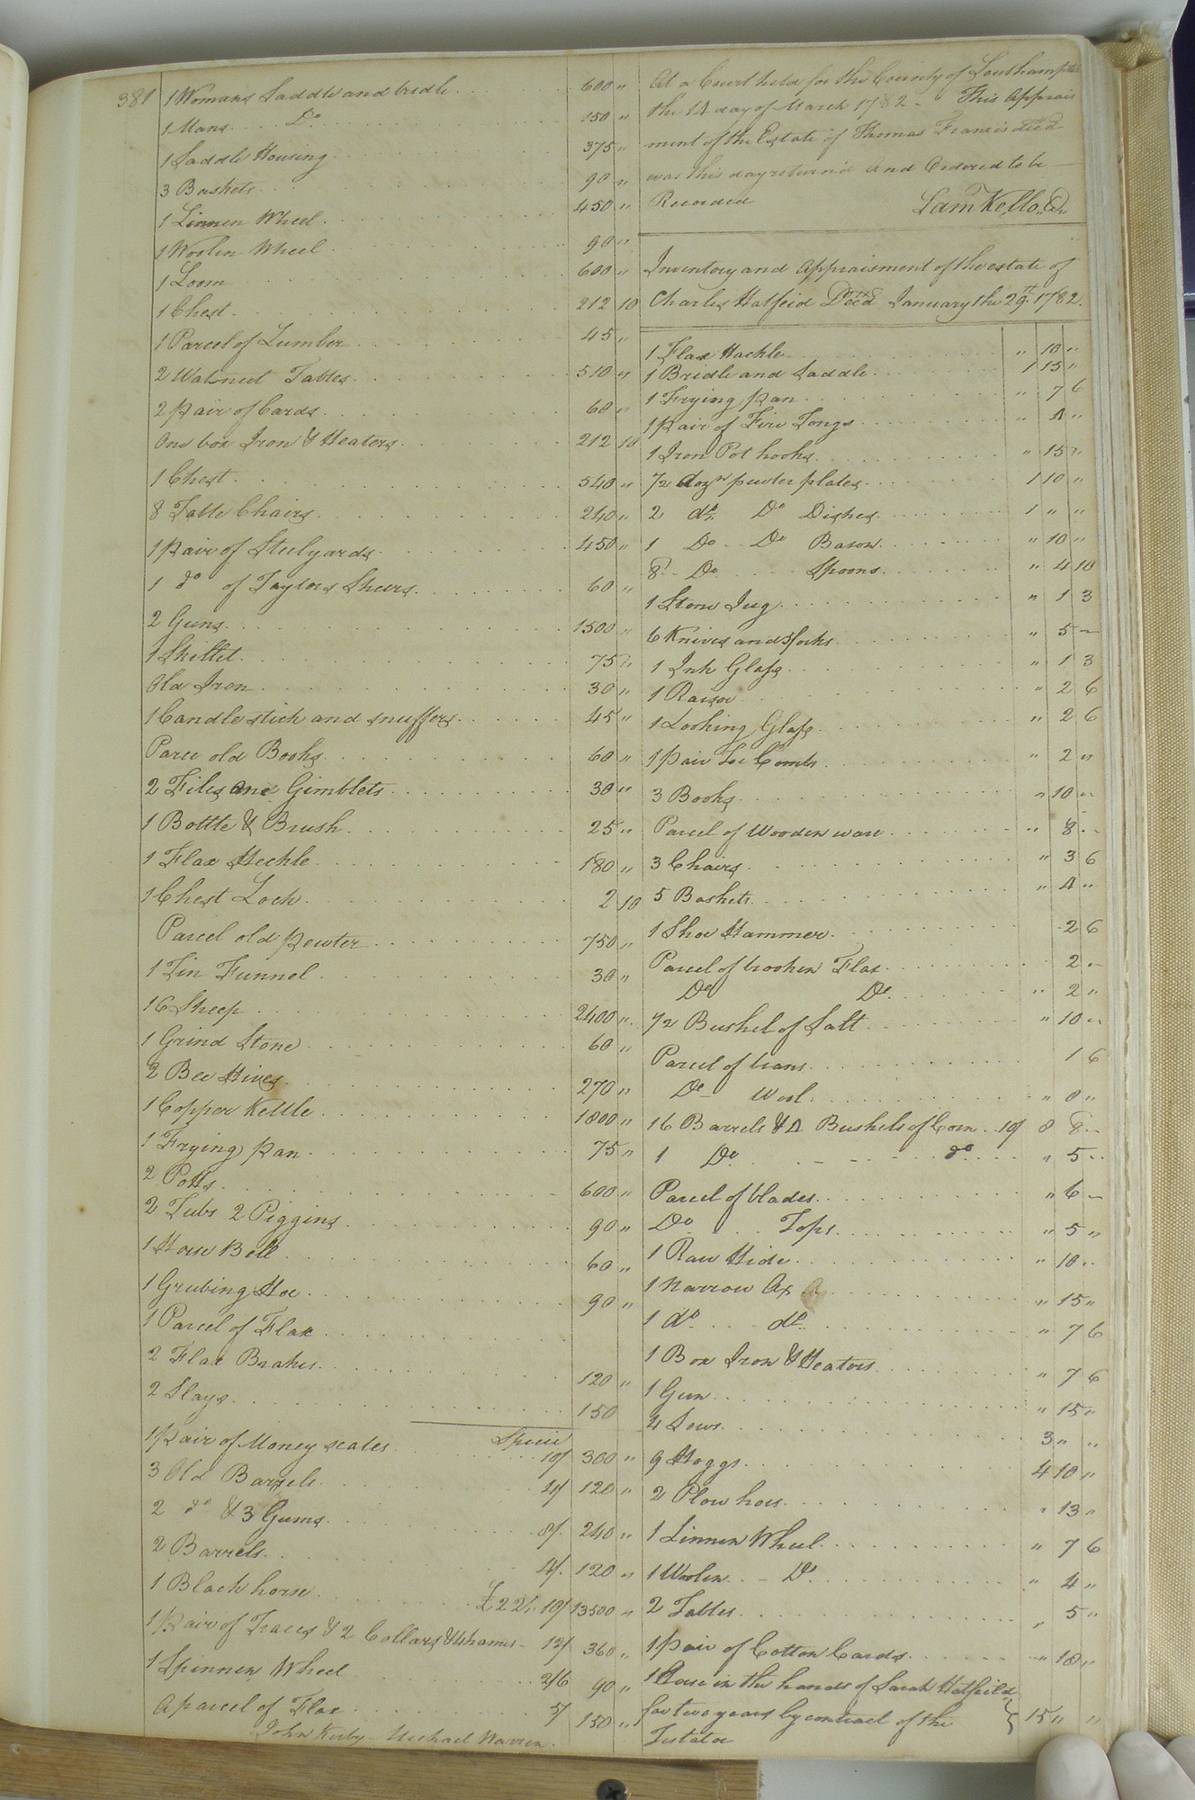 381
1 Womans Saddle and bridle 600 "
1 Mans Do 150 "
1 Saddle Housing 375 "
3 Baskets 90 "
1 Linnen Wheel 450 "
1 Woolen Wheel 90 "
1 Loom 600 "
1 Chest 212 10
1 Parcel of Lumber 45 "
2 Walnut Tables 510 "
2 pair of Cards 60 "
One box Iron & Heaters 212 10
1 Chest 540 "
8 Table Chairs 240 "
1 pair of Steelyards 450 "
1 do of Taylors Shears 60 "
2 Guns 1500 "
1 Skillet 75 "
Old Iron 30 "
1 Candle stick and snuffers 45 "
Parce old Books 60 "
2 Files one Gimblets 30 "
1 Bottle & Brush 25 "
1 Flax Heckle 180 "
1 Chest Lock 2 10
Parcel old pewter 750 "
1 Tin Funnel 30 "
16 Sheep 2400 "
1 Grind Stone 60 "
2 Bee Hives 270 "
1 Copper Kettle 1800 "
1 Frying pan 75 "
2 Potts 600 "
2 Tubs 2 Piggins 90 "
1 Horse Bell 60 "
1 Grubing Hoe 90 "
1 Parcel of Flax
2 Flax Brakes 120 "
2 Slays 150
Specie
1 pair of Money scales 10/ 300 "
3 Old Barrels 4/ 120 "
2 do & 3 Gums 8/ 240 "
2 Barrels 4/ 120 "
1 Black horse £22. 10/ 13500 "
1 pair of Traces & 2 Collars & Hhames 12/ 360 "
1 Spinnen Wheel 2/6 90 "
A parcel of Flax 5/ 150 "
John Kirby Michael Warren
At a Court held for the County of Southampton
the 14 day of March 1782 - This Apprais
ment of the Estate of Thomas Francis decd
was this day returnd and Ordered to be
Recorded
Saml Kello Cr
Inventory and Appraisment of the estate of
Charles Hatfeid Decd January the 29th 1782.
1 Flax Hackle " 10 "
1 Bridle and Saddle 1 15 "
1 Frying pan " 7 6
1 pair of Fire Tongs " 4 "
1 Iron Pot hooks " 15 "
1/2 dozn pewter plates 1 10 "
2 do Do Dishes 1 " "
1 Do Do Bason " 10 "
8 Do Spoons " 4 10
1 Stone Jug " 1 3
6 Knives and 5 forks " 5 "
1 Ink Glass " 1 3
1 Raisor " 2 6
1 Looking Glass " 2 6
1 pair Combs " 2 "
3 Books " 10 "
Parcel of Wooden ware " 8 "
3 Chairs " 3 6
5 Baskets " 4 "
1 Shoe Hammer 2 6
Parcel of brooken Flax 2 "
Do Do " 2 "
1/2 Bushel of Salt " 10 "
Parcel of beans 1 6
Do Wool " 8 "
16 Barrels & 4 Bushels of Corn 10/ 8 8 "
1 Do do " 5 "
Parcel of blades " 6 "
Do Tops " 5 "
1 Raw Hide " 10 "
1 Narrow Ax " 15 "
1 do do " 7 6
1 Box Iron & Heators " 7 6
1 Gun " 15 "
4 Sows 3 " "
9 Hoggs 4 10 "
2 Plow hoes " 13 "
1 Linnen Wheel " 7 6
1 Woolen Do " 4 "
2 Tables " 5 "
1 pair of Cotton Cards " 10 "
1 in the hands of Sarah Hatfeild
for two years by contract of the 15 " "
Testator